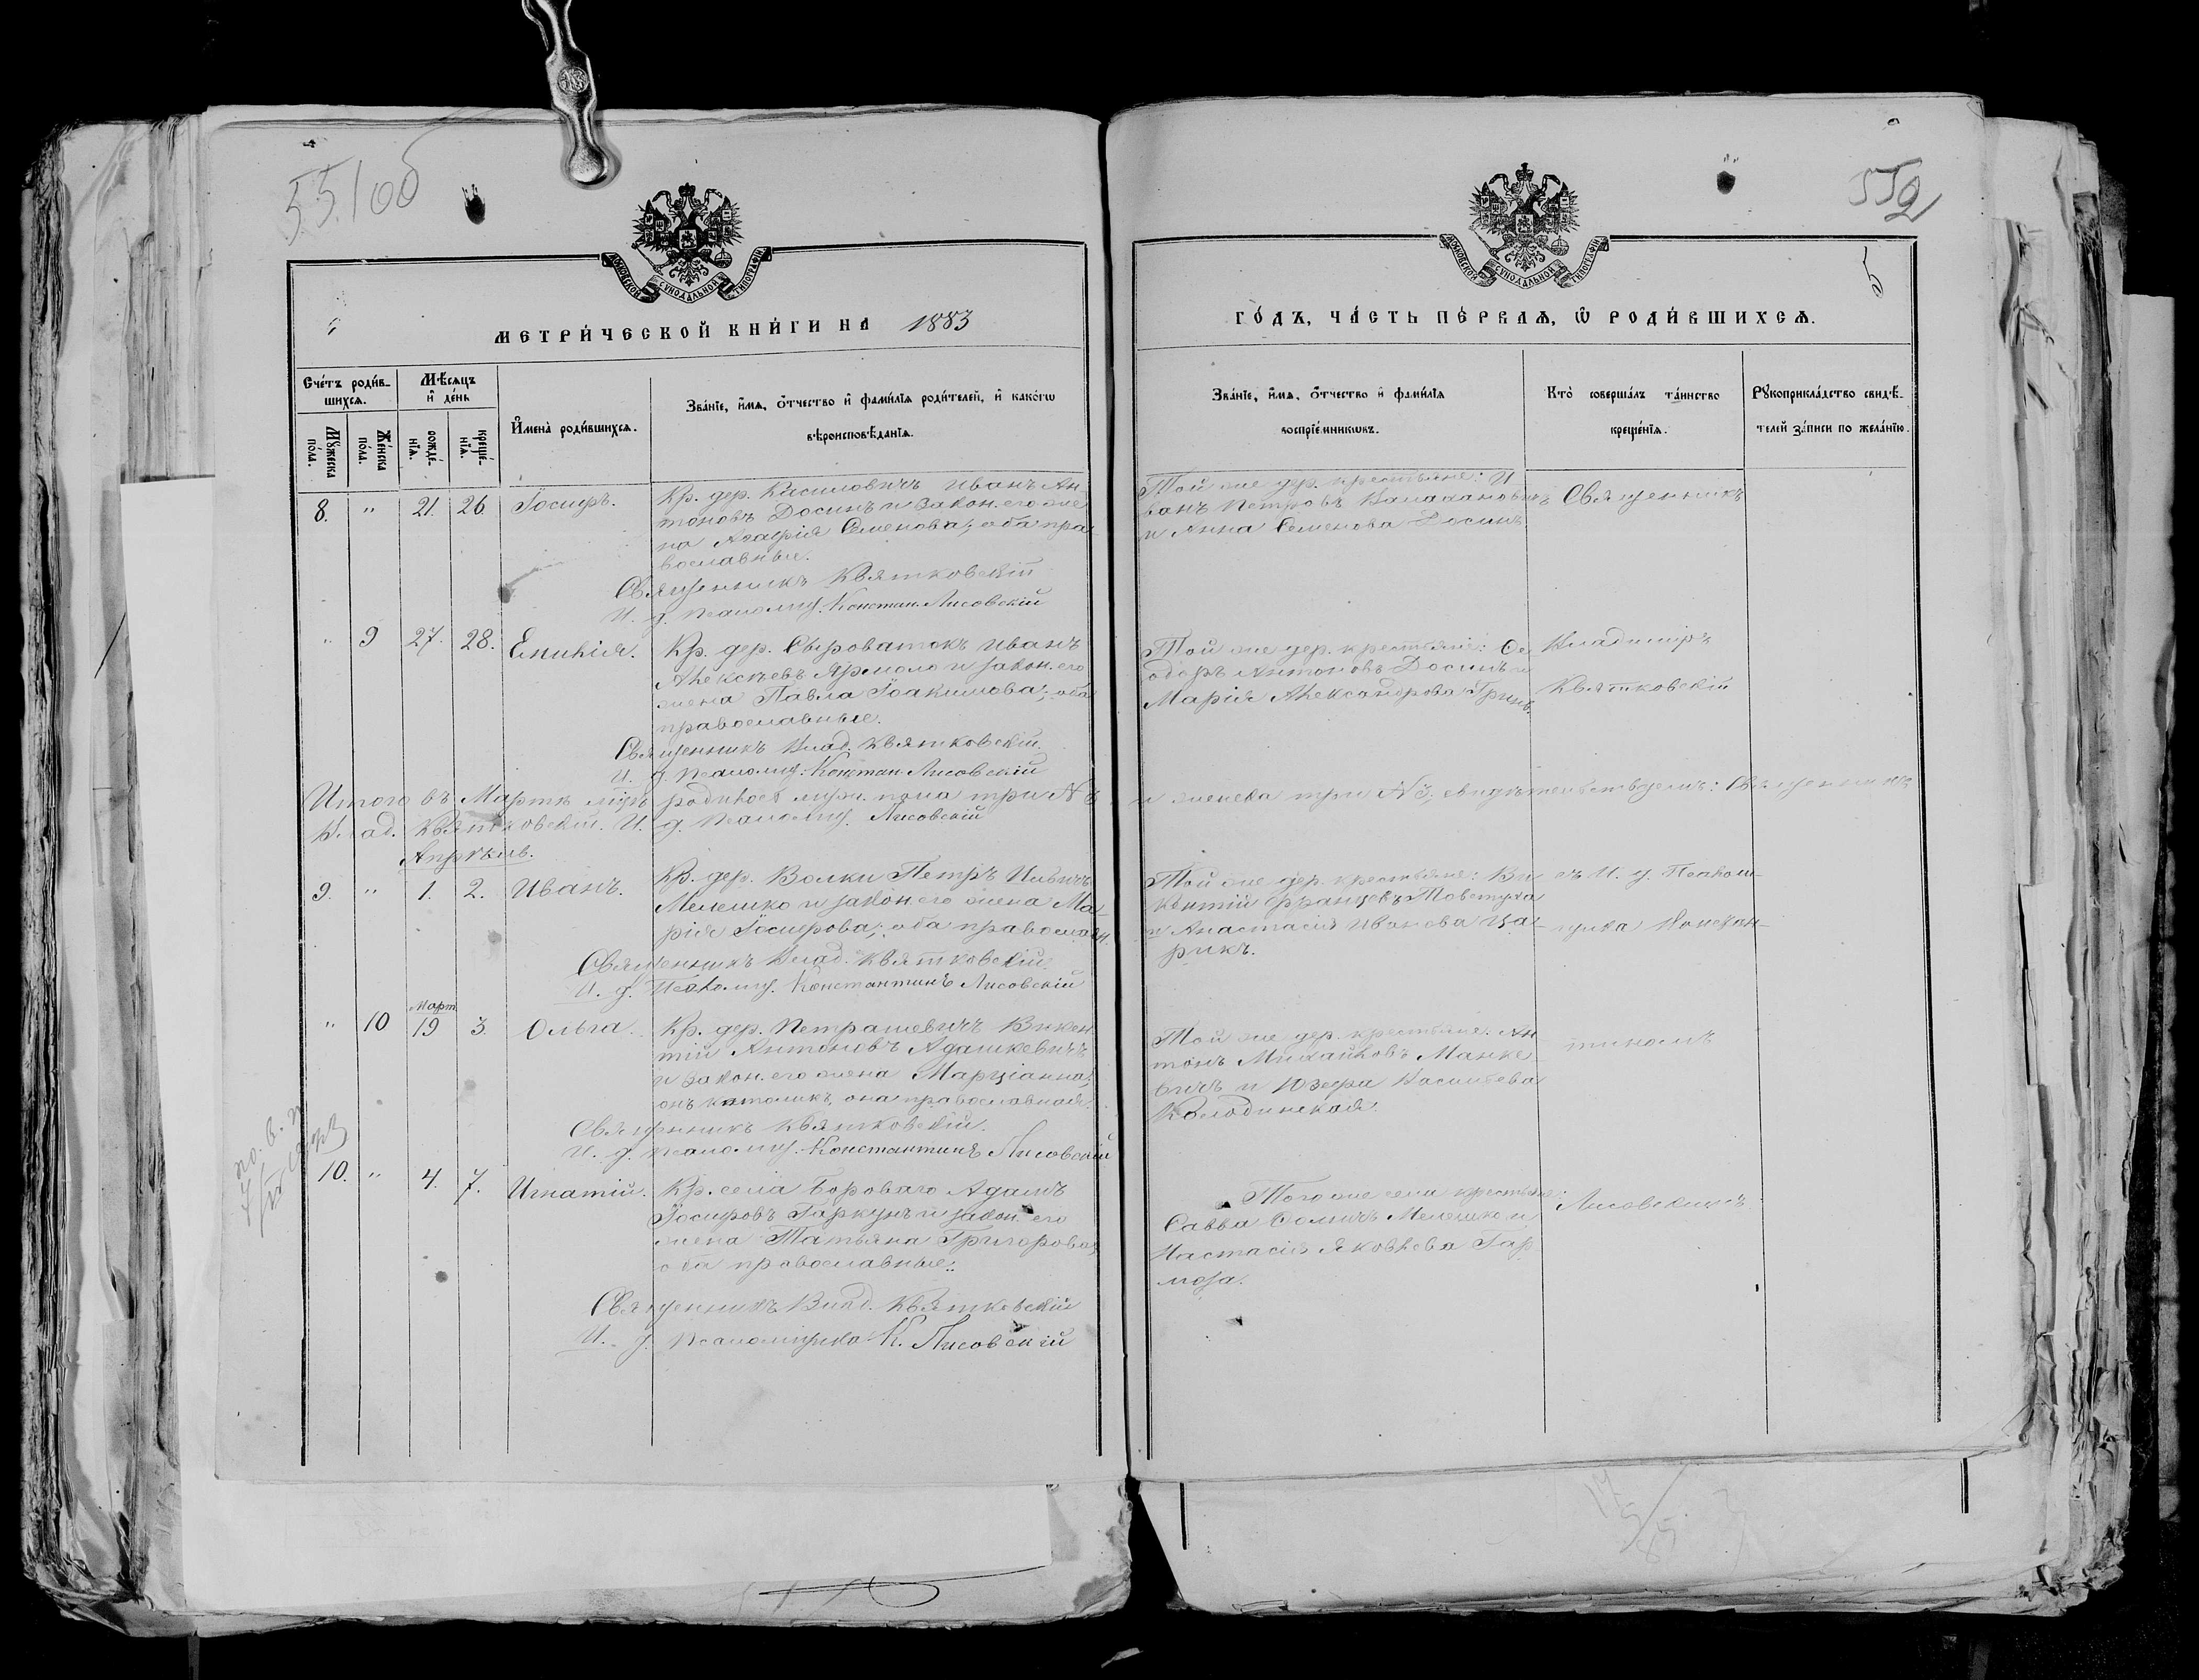 551 об
552
5
МОСКОВСКОЙ СУНОДАЛЬНОЙ ТИПОГРАФІИ
МЕТРИ́ЧЕСКОЙ КНИ́ГИ НА 1883
Сче́тъ роди́в-
шихся.
Мѣ́сяцъ
и҆ де́нь
Мꙋ́жеска
по́ла.
Же́нска
по́ла.
рожде́-
нїѧ.
креще́-
нїѧ.
И҆мена̀ роди́вшихсѧ.
Зва́нїе, и҆́мѧ, ѻ҆́тчество и҆ фами́лїѧ роди́телей, и҆ како́гѡ
вѣроисповѣ́данїѧ.
8. " 21. 26. Іосифъ.
Кр. дер. Касиловичъ Иванъ Ан-
тоновъ Досинъ и закон. его же
на Агафія Семенова; оба пра-
вославные.
Священникъ Квятковскій
И. д. псаломщ. Констан. Лисовскій
" 9 27. 28. Епикія.
Кр. дер. Сыроватокъ Иванъ
Алексѣевъ Ярмоло и закон. его
жена Павла Іоакимова; оба
православные.
Священникъ Влад. Квятковскій.
И. д. псаломщ. Констан. Лисовскій
Итого въ Мартѣ мцѣ родилось муж. пола три №3
Влад. Квятковскій. И. д. псаломщ. Лисовскій
Апрѣль.
9. " 1. 2. Иванъ.
Кр. дер. Волки Петръ Ильичъ
Мелешко и закон. его жена Ма-
рія Іосифова; оба православн.
Священникъ Влад. Квятковскій.
И. д. Псаломщ. Константинъ Лисовскій
Март
" 10 19 3. Ольга.
Кр. дер. Петрашевичъ Викен-
тій Антоновъ Адашкевичъ
и закон. его жена Марціанна;
онъ католикъ, она православная.
Священникъ Квятковскій.
И. д. псаломщ. Константинъ Лисовскій
10. " 4. 7. Игнатій.
Кр. села Бороваго Адамъ
Іосифовъ Гаркунъ и закон. его
жена Татьяна Григорова;
оба православные.
Священникъ Влад. Квятковскій
И. д. псаломщика К. Лисовскій
ГО́ДЪ, ЧА́СТЬ ПЕ́РВАѦ, Ѡ҆ РОДИ́ВШИХСѦ.
Зва́нїе, и҆́мѧ, ѻ҆́тчество и҆ фами́лїѧ
воспрїе́мникѡвъ.
Кто̀ соверша́лъ та́инство
креще́нїѧ.
Рꙋкоприкла́дство свидѣ́-
телей за́писи по жела́нїю.
Той же дер. крестьяне: И
ванъ Петровъ
и Анна Семенова Досинъ
Священникъ
Той же дер. крестьяне: Ѳе
одоръ Антоновъ Досинъ и
Марія Александрова Гринь.
Владимиръ
Квятковскій
и женска три №3, свидѣтельствуемъ: Священникъ
Той же дер. крестьяне: Ви
кентій Францовъ Товстуха
и Анастасія Иванова Ца-
рикъ.
съ И. д. Псалом-
щика Констан-
Той же дер. крестьяне: Ан
тонъ Михайловъ Манке
вичъ и Юзефа Васильева
Колодинская.
тиномъ
Того же села крестьяне:
Савва Ѳомичъ Мелешко и
Настасія Яковлева Гар
моза.
Лисовскимъ